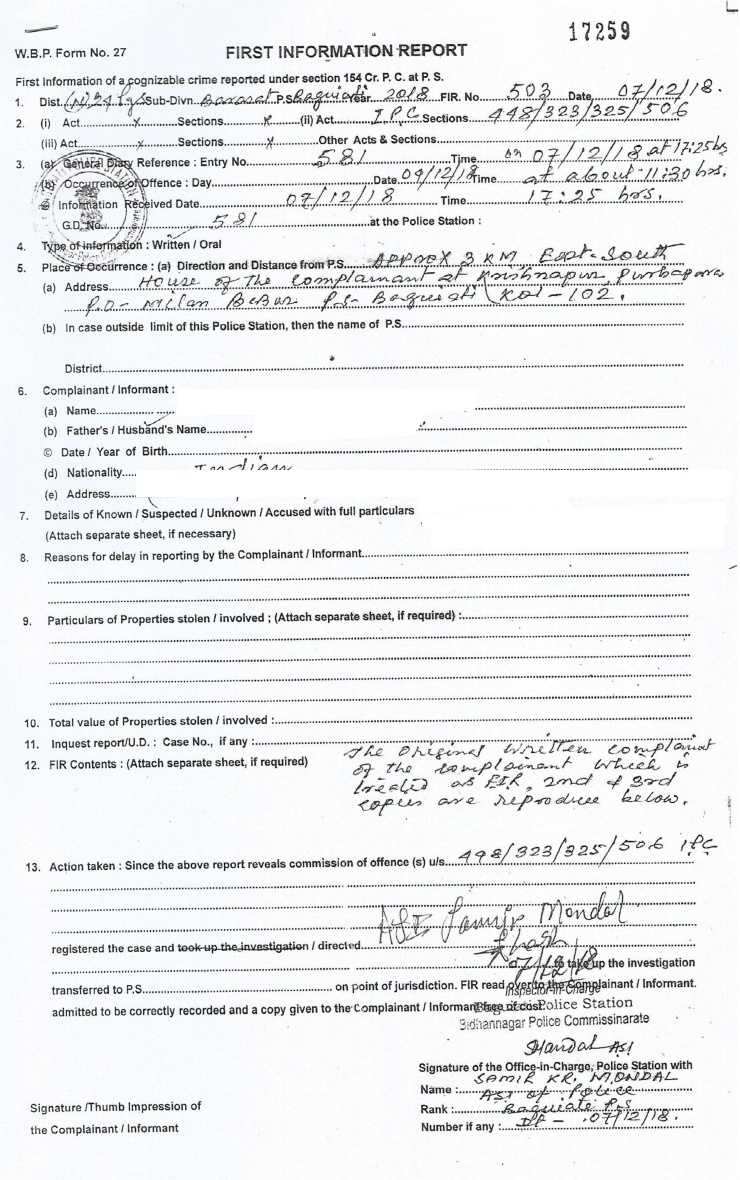 17259
W.B.P. Form No. 27
FIRST INFORMATION REPORT
First Information of a cognizable crime reported under section 154 Cr. P. C. at P. S.
1. Dist. (N) 24 Pgs Sub-Divn. Barasat P.S. Baguiati Year 2018 FIR. No. 503 Date 07/12/18.
2. (i) Act x Sections x (ii) Act IPC Sections 448/323/325/506
(iii) Act x Sections x Other Acts & Sections
3. (a) General Diary Reference : Entry No. 581 Time on 07/12/18 at 17:25 hrs
(b) Occurrence of Offence : Day Date 04/12/18 Time at about 11:30 hrs.
Information Received Date 07/12/18 Time 17:25 hrs.
G.D. No. 581 at the Police Station :
4. Type of information : Written / Oral
5. Place of Occurrence : (a) Direction and Distance from P.S. APPROX 3 KM East-South
(a) Address House of the complainant at Krishnapur, Purbapara
P.O- Milan Bazar P.S- Baguiati Kol-102.
(b) In case outside limit of this Police Station, then the name of P.S.
District
6. Complainant / Informant :
(a) Name
(b) Father's / Husband's Name
© Date / Year of Birth
(d) Nationality Indian
(e) Address
7. Details of Known / Suspected / Unknown / Accused with full particulars
(Attach separate sheet, if necessary)
8. Reasons for delay in reporting by the Complainant / Informant
9. Particulars of Properties stolen / involved ; (Attach separate sheet, if required) :
10. Total value of Properties stolen / involved :
11. Inquest report/U.D. : Case No., if any :
12. FIR Contents : (Attach separate sheet, if required)
The original written complaint
of the complainant which is
treated as FIR, 2nd & 3rd
copies are reproduce below.
13. Action taken : Since the above report reveals commission of offence (s) u/s. 448/323/325/506 IPC
ASI Samir Mondal
registered the case and took up the investigation / directed
07/12/18 to take up the investigation
transferred to P.S. on point of jurisdiction. FIR read over to the Complainant / Informant.
Inspector-in-Charge
admitted to be correctly recorded and a copy given to the Complainant / Informant free of cost. Police Station
Bidhannagar Police Commissinarate
Mondal ASI
Signature of the Office-in-Charge, Police Station with
Name : SAMIR KR. MONDAL
ASI of Police
Rank : Baguiati P.S
Number if any : Dt - 07/12/18.
Signature /Thumb Impression of
the Complainant / Informant